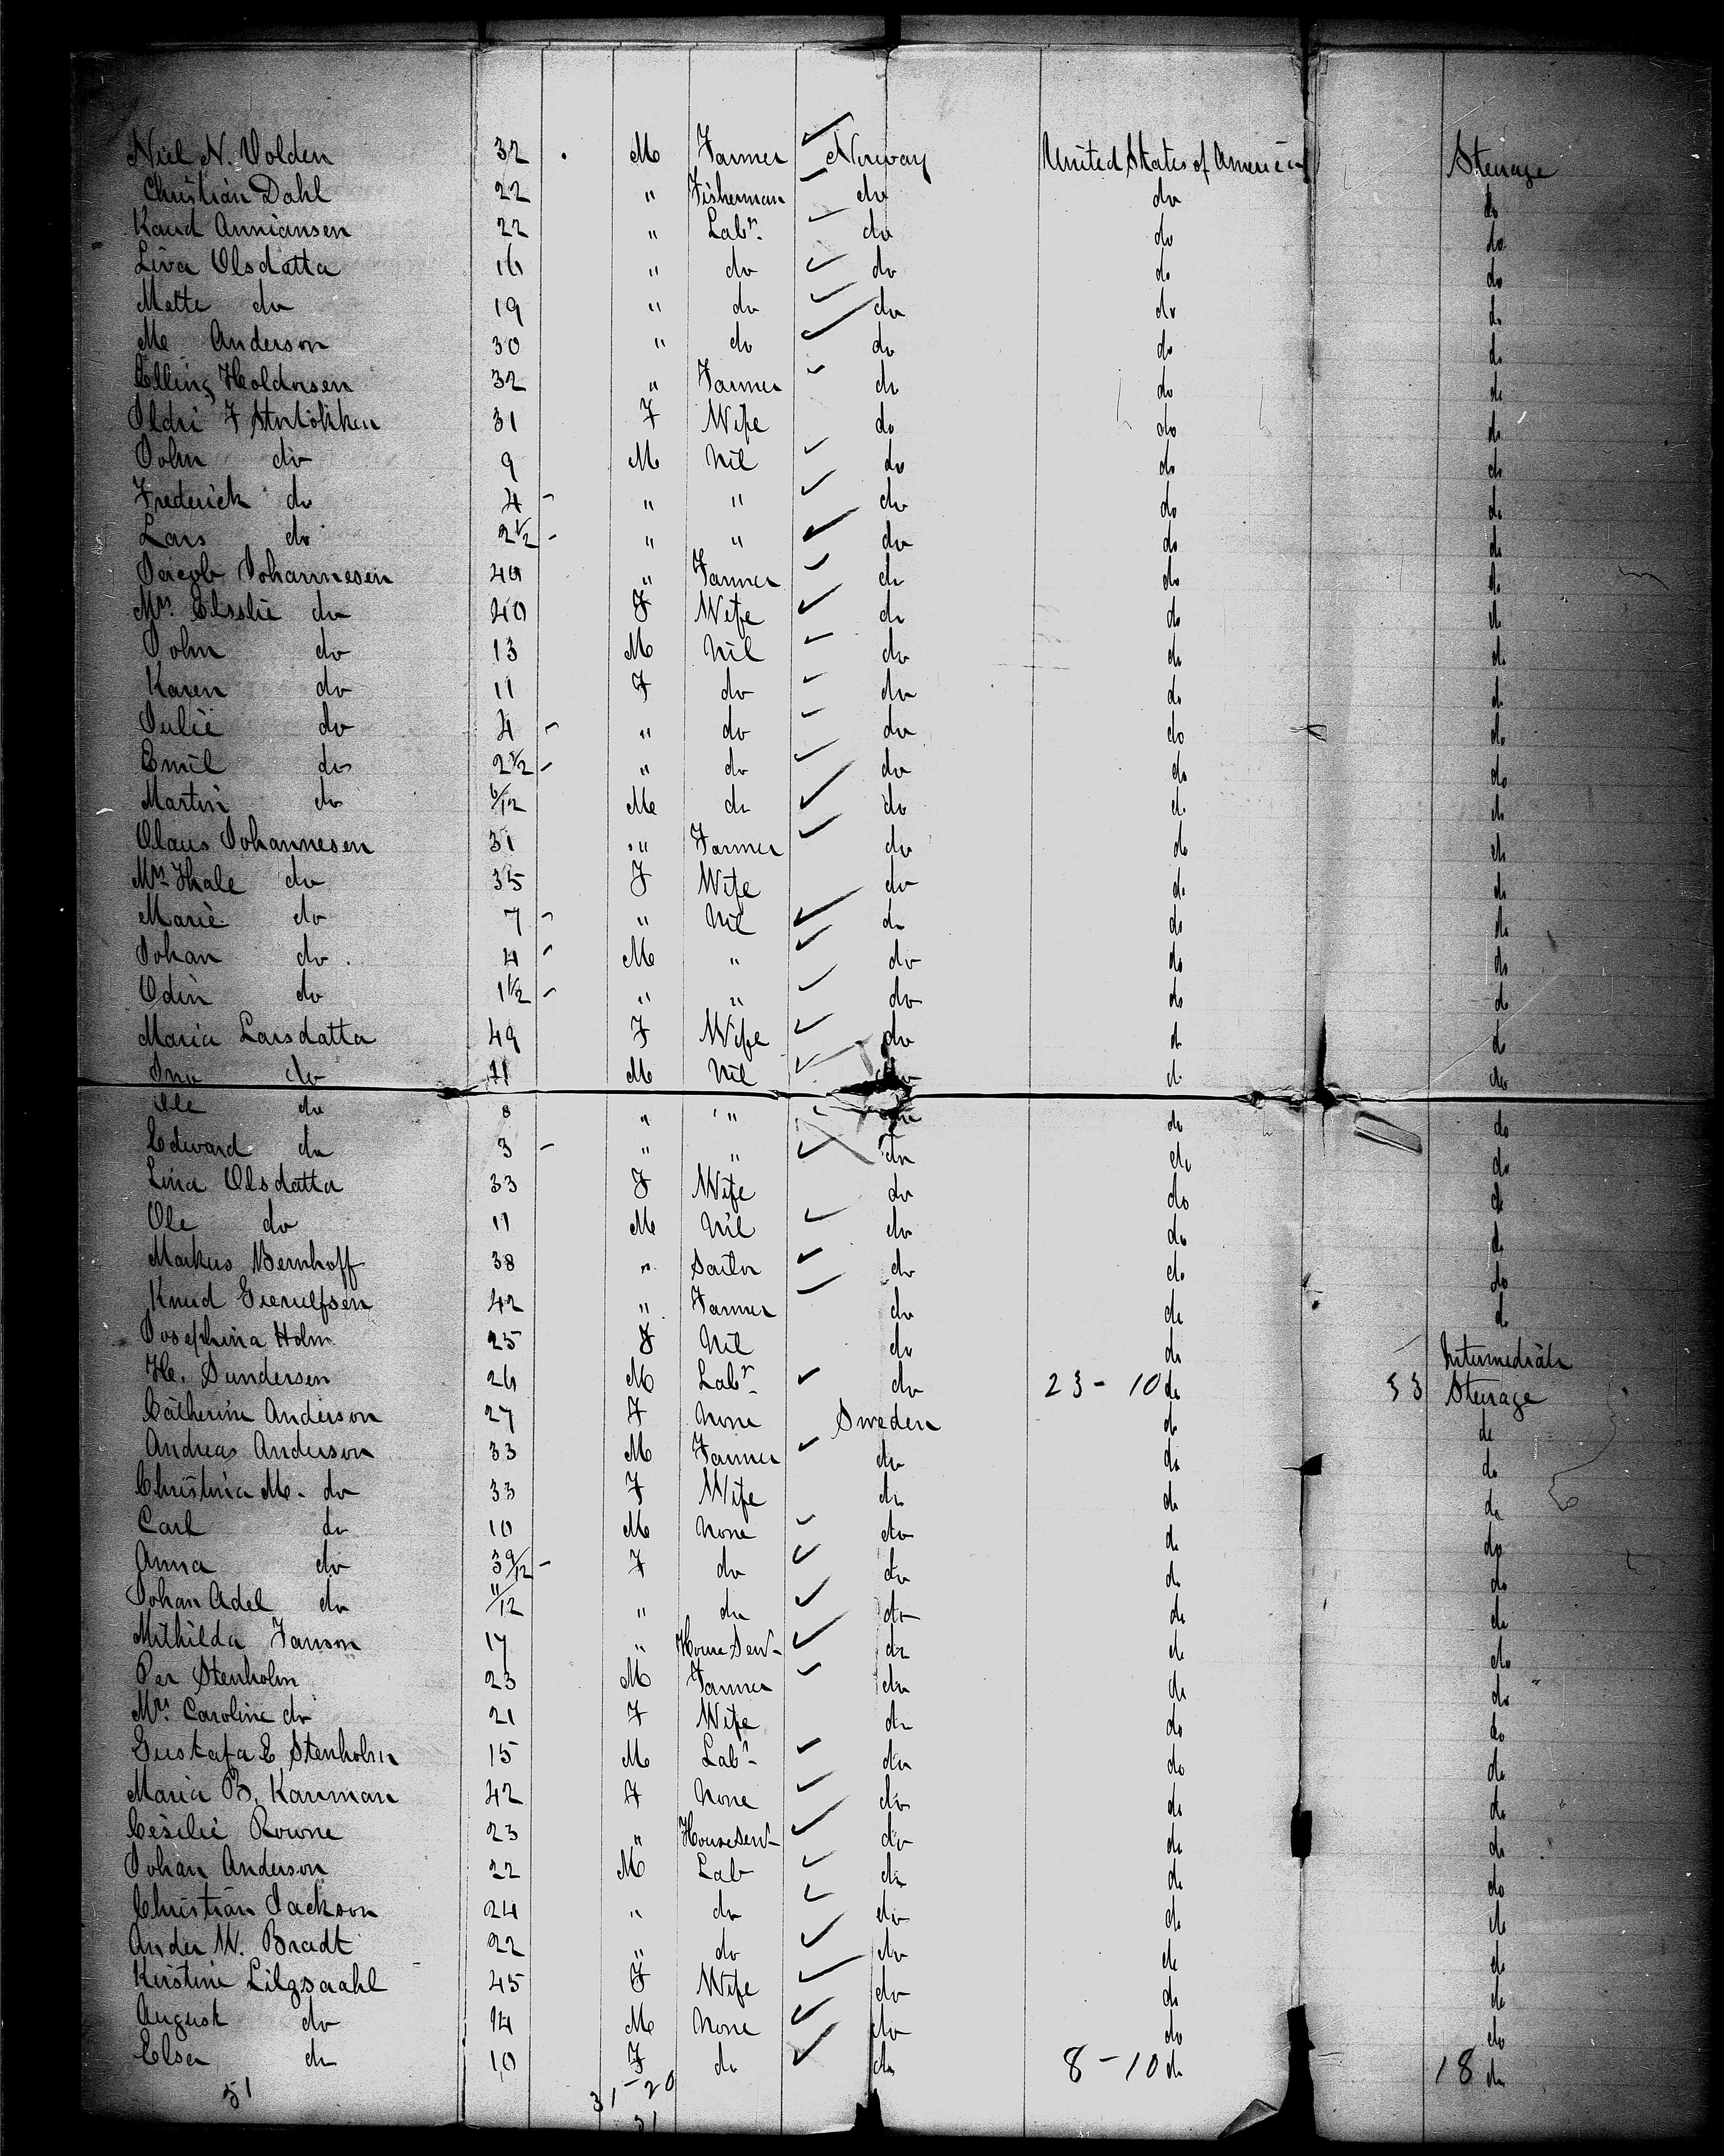 Niel N. Volden 32 M Farmer Norway United States of America Steerage
Christian Dahl 22 " Fisherman do do do
Knud Anniansen 22 " Labr. do do do
Liva Olsdatta 16 " do do do do
Mette do 19 " do do do do
M Anderson 30 " do do do do
Elling Holdorsen 32 " Farmer do do do
Oldri F 31 F Wife do do do
John do 9 M Nil do do do
Frederick do 4 - " " do do do
Lars do 2 1/2 - " " do do do
Jacob Johannesen 40 " Farmer do do do
Mrs. Elsslie do 40 F Wife do do do
John do 13 M Nil do do do
Karen do 11 F do do do do
Julie do 4 - " do do do do
Emil do 2 1/2 - " do do do do
Martin do 6/12 M do do do do
Olaus Johannesen 31 " Farmer do do do
Mrs Thale do 35 F Wife do do do
Marie do 7 - " Nil do do do
Johan do 4 - M " do do do
Odin do 1 1/2 - " " do do do
Maria Larsdatta 49 F Wife do do do
do 11 M Nil do do do
Ole do 8 " " do do do
Edward do 3 - " " do do do
Lina Olsdatta 33 F Wife do do do
Ole do 11 M Nil do do do
Markus Bernhoff 38 " Sailor do do do
Knud 42 " Farmer do do do
Josephina Holm 25 F Nil do do Intermediate
He. Sundersen 26 M Labr. do 23 - 10 do 33 Steerage
Catherine Anderson 27 F None Sweden do do
Andreas Anderson 33 M Farmer do do do
Christina M. do 33 F Wife do do do
Carl do 10 M None do do do
Anna do 3 9/12 - F do do do do
Johan Adel do 11/12 " do do do do
Mithilda Janson 17 " House Servt do do do
Per Stenholm 23 M Farmer do do do
Mrs. Caroline do 21 F Wife do do do
Gustafa E Stenholm 15 M Labr do do do
Maria B. Karrman 42 F None do do do
Cesilie Rowne 23 " House Servt do do do
Johan Anderson 22 M Lab do do do
Christian Jackson 24 " do do do do
Ander W. Bradt 22 " do do do do
Kirstine Lilgsaahl 45 F Wife do do do
August do 14 M None do do do
Elsa do 10 F do do 8 - 10 do 18 do
51 31 - 20
51